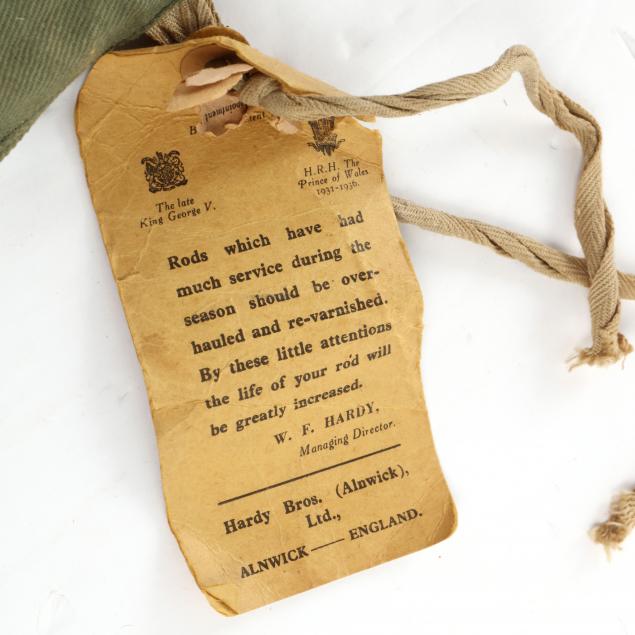 Appointment
The late
King George V.
H.R.H. The
Prince of Wales
1931-1936.
Rods which have had
much service during the
season should be over-
hauled and re-varnished.
By these little attentions
the life of your rod will
be greatly increased.
W. F. HARDY,
Managing Director.
Hardy Bros. (Alnwick),
Ltd.,
ALNWICK — ENGLAND.